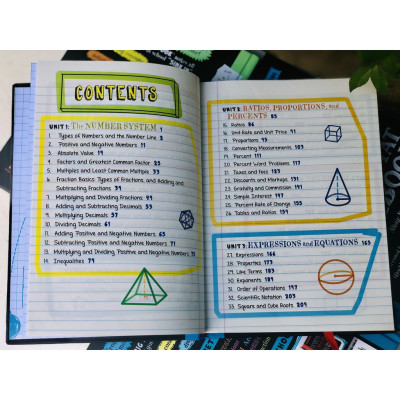 CONTENTS
UNIT 1: The NUMBER SYSTEM 1
1. Types of Numbers and the Number Line 2
2. Positive and Negative Numbers 11
3. Absolute Value 19
4. Factors and Greatest Common Factor 25
5. Multiples and Least Common Multiple 33
6. Fraction Basics: Types of Fractions, and Adding and
Subtracting Fractions 39
7. Multiplying and Dividing Fractions 49
8. Adding and Subtracting Decimals 53
9. Multiplying Decimals 57
10. Dividing Decimals 61
11. Adding Positive and Negative Numbers 65
12. Subtracting Positive and Negative Numbers 71
13. Multiplying and Dividing Positive and Negative Numbers 75
14. Inequalities 79
UNIT 2: RATIOS, PROPORTIONS, and
PERCENTS 85
15. Ratios 86
16. Unit Rate and Unit Price 91
17. Proportions 95
18. Converting Measurements 103
19. Percent 111
20. Percent Word Problems 117
21. Taxes and Fees 123
22. Discounts and Markups 131
23. Gratuity and Commission 141
24. Simple Interest 147
25. Percent Rate of Change 155
26. Tables and Ratios 159
UNIT 3: EXPRESSIONS and EQUATIONS 165
27. Expressions 166
28. Properties 173
29. Like Terms 183
30. Exponents 189
31. Order of Operations 197
32. Scientific Notation 203
33. Square and Cube Roots 209